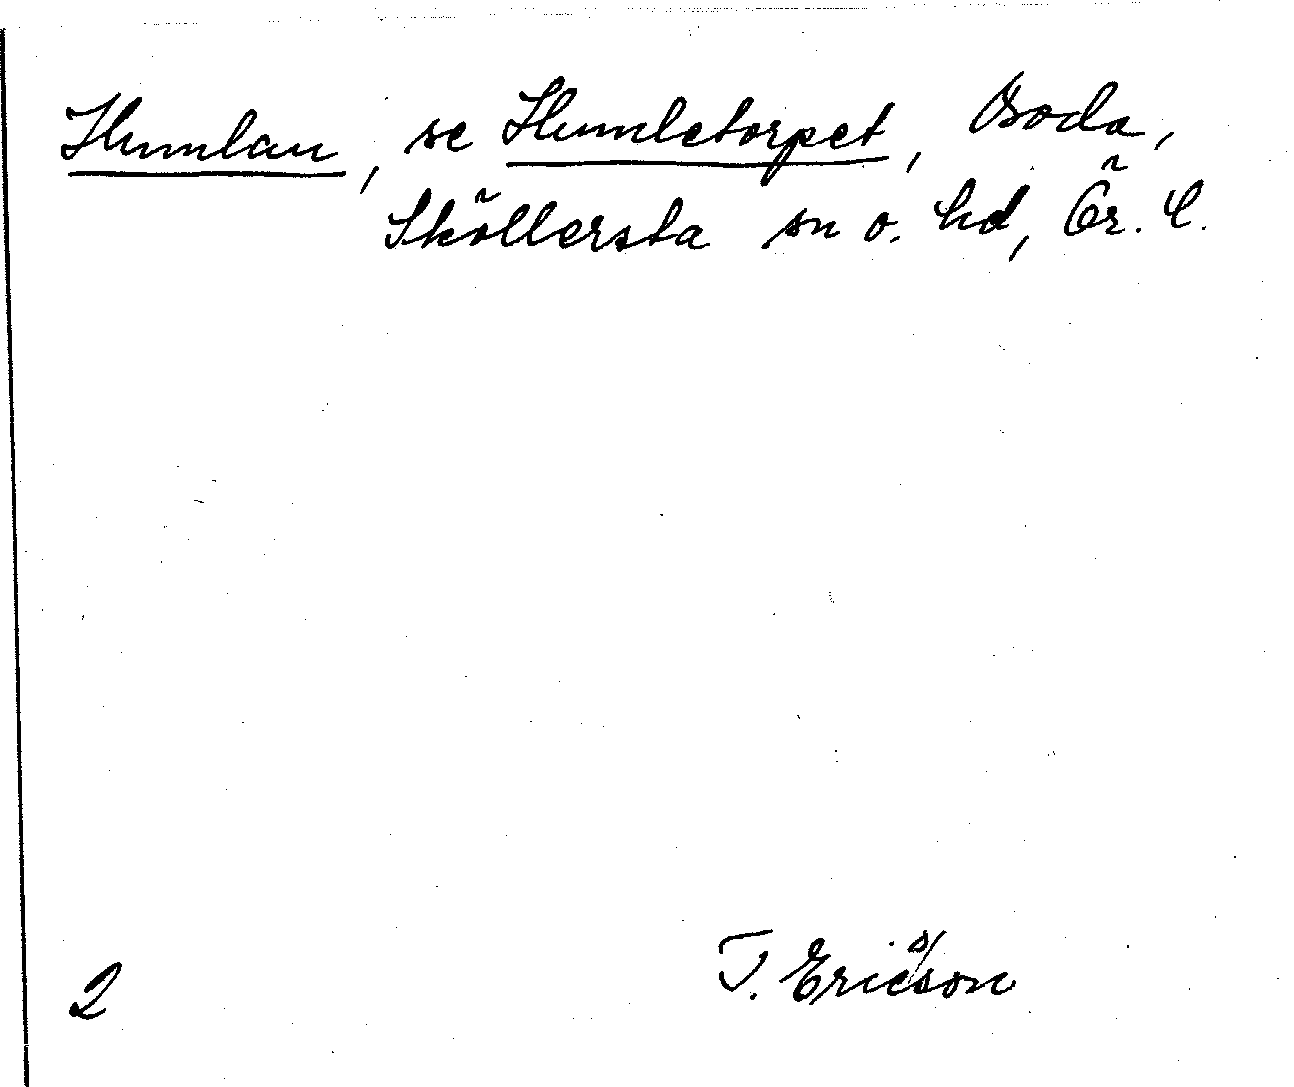 Humlan, se Humletorpet, Boda,
Sköllersta sn o. hd, Ör. l.
T. Ericsson
2